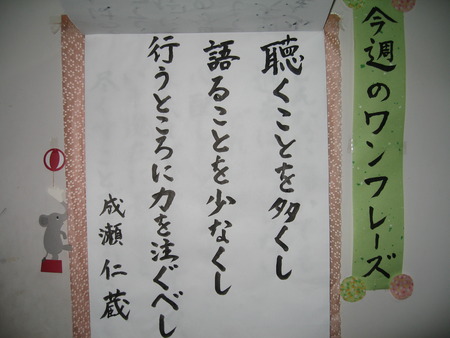 今週のワンフレーズ
聴くことを多くし
語ることを少なくし
行うところに力を注ぐべし
成瀬仁蔵